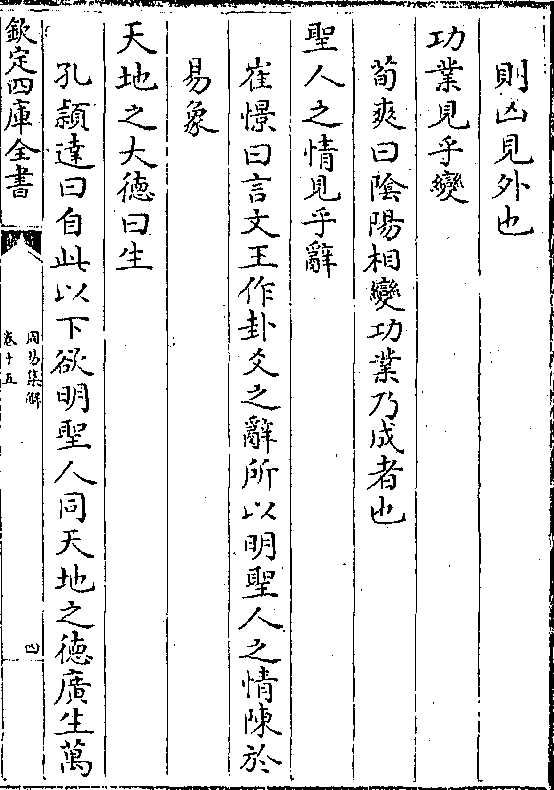 則凶見外也
功業見乎變
荀爽曰陰陽相變功業乃成者也
聖人之情見乎辭
崔憬曰言文王作卦爻之辭所以明聖人之情陳於
易象
天地之大德曰生
孔穎達曰自此以下欲明聖人同天地之德廣生萬
欽定四庫全書
周易集解
卷十五
四